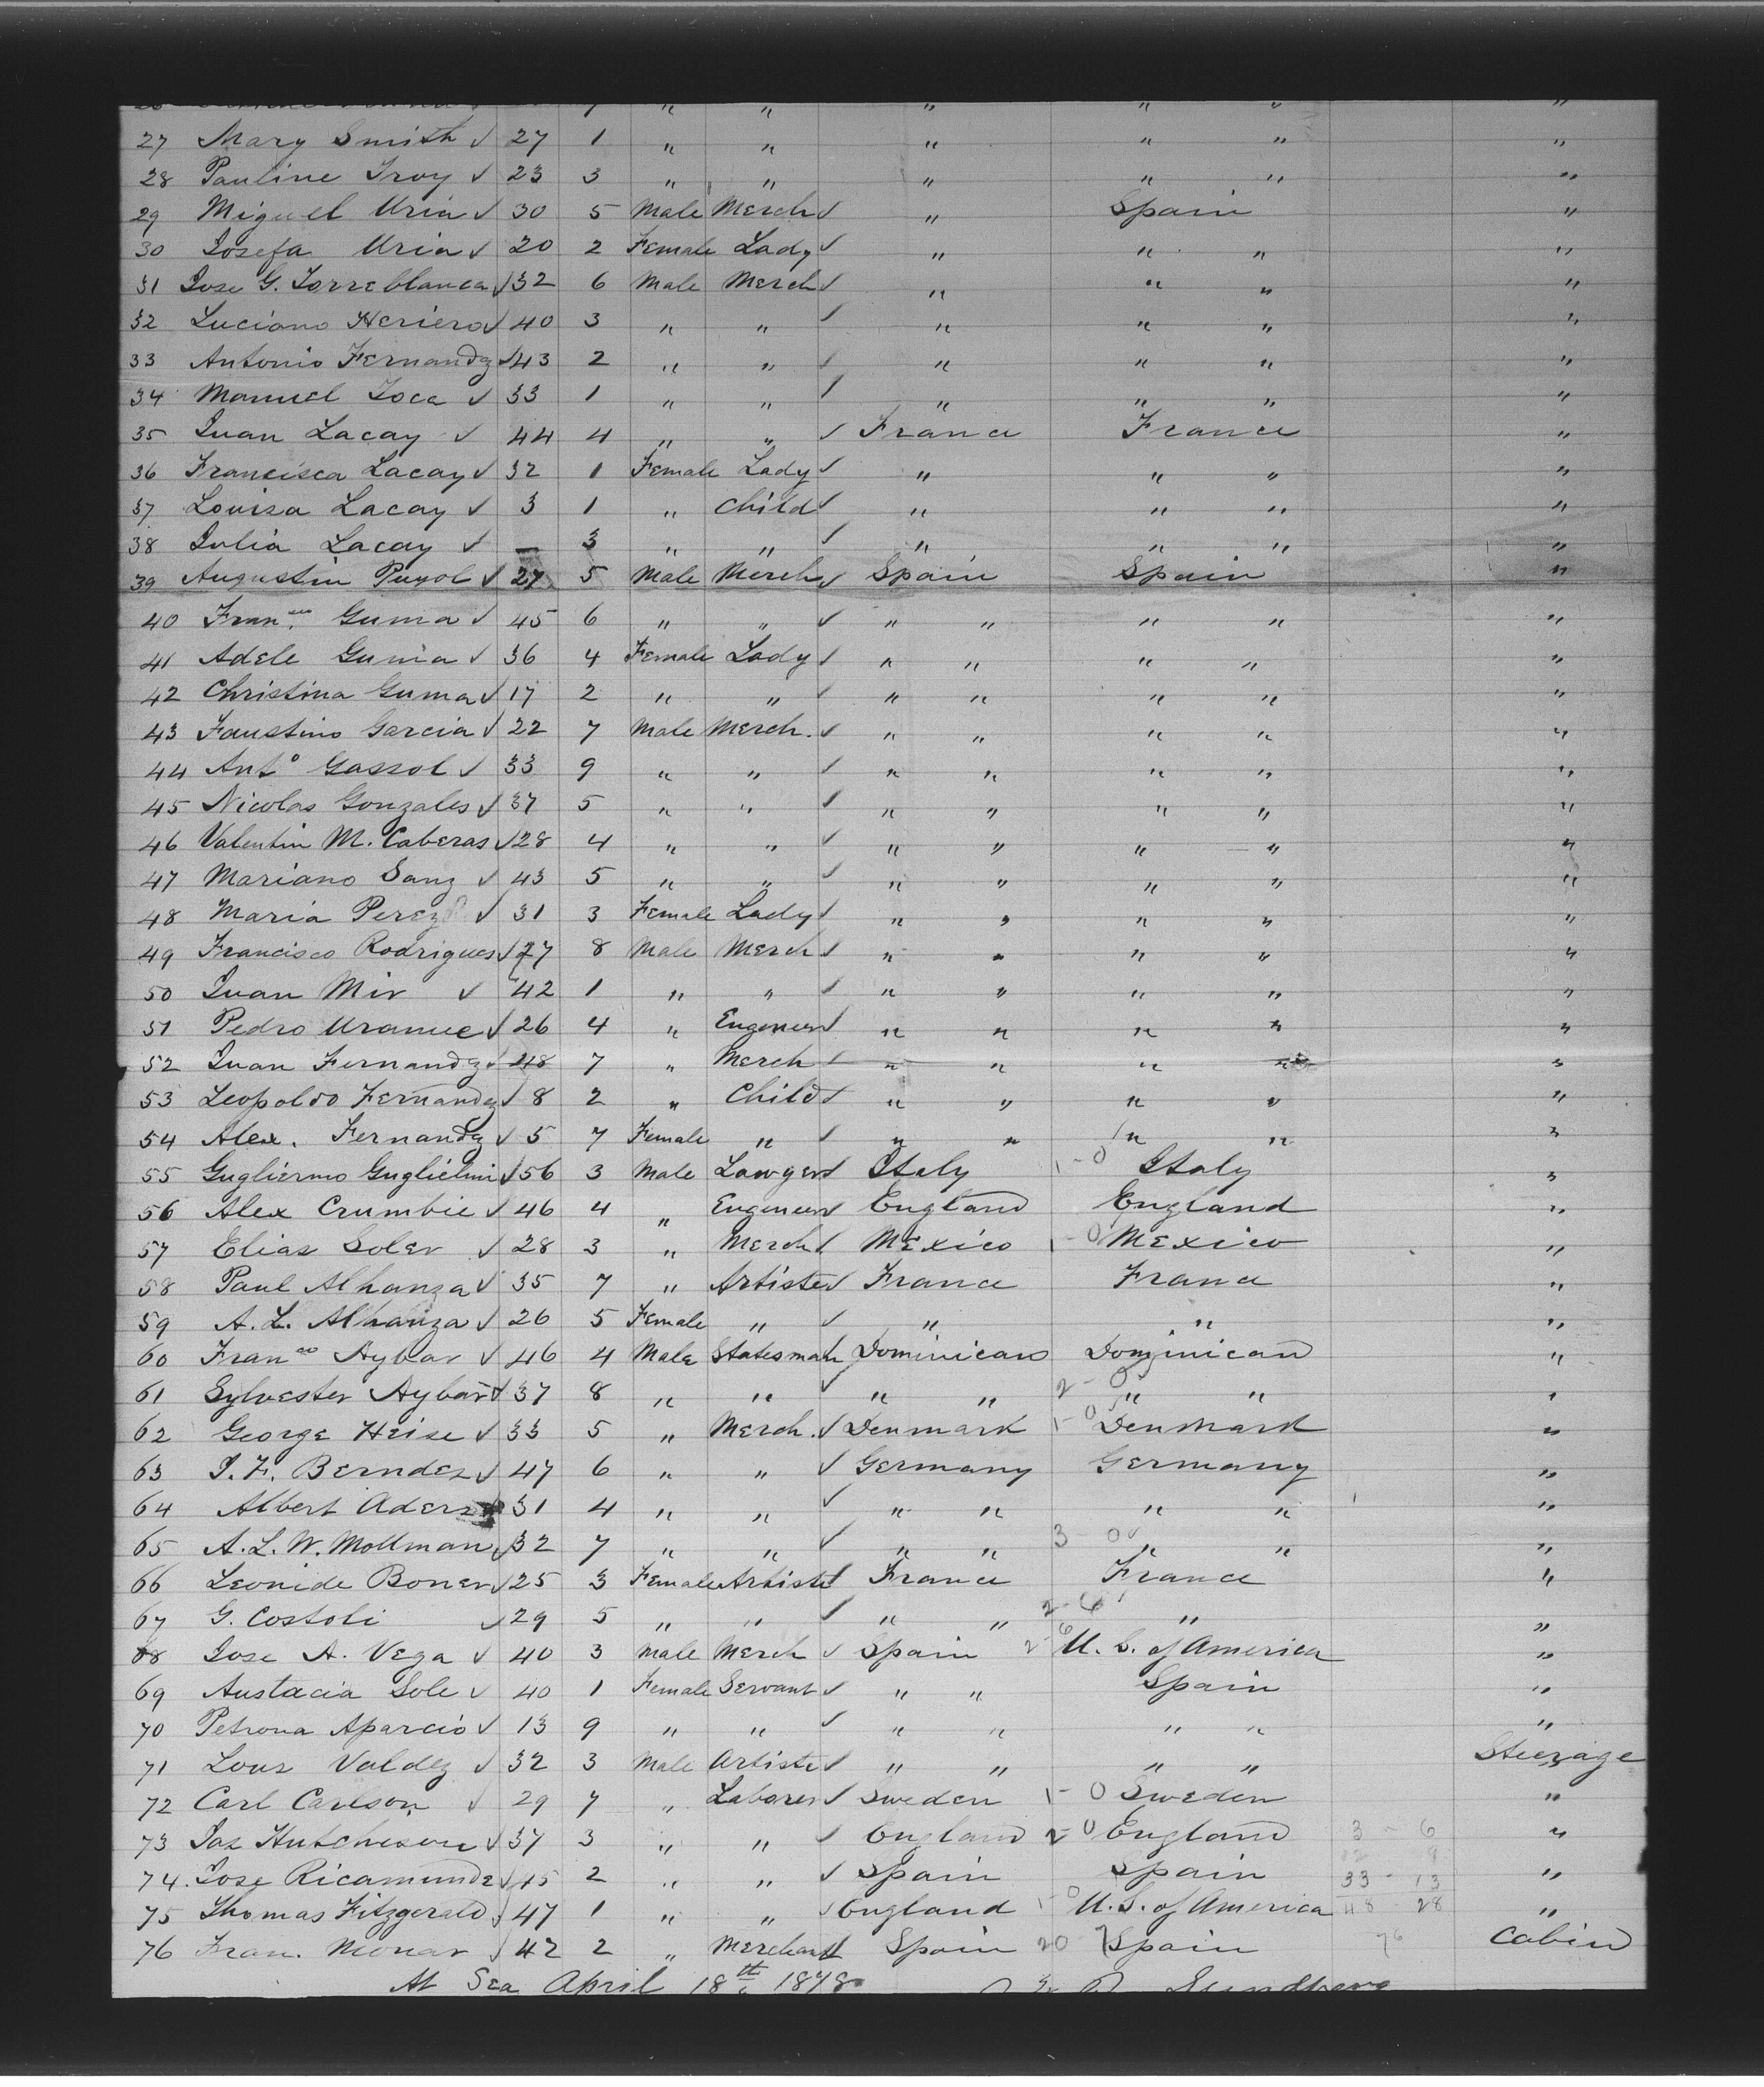 27 Mary Smith ✓ 27 1 " " " " " "
28 Pauline Troy ✓ 23 3 " " " " " "
29 Miguel Uria ✓ 30 5 Male Merch ✓ " Spain "
30 Josefa Uria ✓ 20 2 Female Lady ✓ " " " "
31 Jose G. Torreblanca ✓ 32 6 Male Merch ✓ " " " "
32 Luciano Heriero ✓ 40 3 " " ✓ " " " "
33 Antonio Fernandz ✓ 43 2 " " ✓ " " " "
34 Manuel Toca ✓ 33 1 " " ✓ " " " "
35 Juan Lacay ✓ 44 4 " " ✓ France France "
36 Francisca Lacay ✓ 32 1 Female Lady ✓ " " " "
37 Louisa Lacay ✓ 3 1 " Child ✓ " " " "
38 Julia Lacay ✓ — 3 " " ✓ " " " "
39 Augustin Puyol ✓ 27 5 Male Merch ✓ Spain Spain "
40 Fran.co Guma ✓ 45 6 " " ✓ " " " " "
41 Adele Guma ✓ 36 4 Female Lady ✓ " " " " "
42 Christina Guma ✓ 17 2 " " ✓ " " " " "
43 Faustino Garcia ✓ 22 7 Male Merch. ✓ " " " " "
44 Anto Gassol ✓ 33 9 " " ✓ " " " " "
45 Nicolas Gonzales ✓ 37 5 " " ✓ " " " " "
46 Valentin M. Caberas ✓ 28 4 " " ✓ " " " " "
47 Mariano Sanz ✓ 43 5 " " ✓ " " " " "
48 Maria Perez ✓ 31 3 Female Lady ✓ " " " " "
49 Francisco Rodrigues ✓ 27 8 Male Merch ✓ " " " " "
50 Juan Mir ✓ 42 1 " " ✓ " " " " "
51 Pedro ✓ 26 4 " Engeneer ✓ " " " " "
52 Juan Fernandz ✓ 48 7 " Merch ✓ " " " " "
53 Leopoldo Fernandz ✓ 8 2 " Child ✓ " " " " "
54 Alex. Fernandz ✓ 5 7 Female " ✓ " " " " "
55 Gugliermo Guglielmi ✓ 56 3 Male Lawyer ✓ Italy 1-0 Italy "
56 Alex Crumbie ✓ 46 4 " Engeneer ✓ England England "
57 Elias Soler ✓ 28 3 " Merch ✓ Mexico 1-0 Mexico "
58 Paul Alhanza ✓ 35 7 " Artiste ✓ France France "
59 A. L. Alhanza ✓ 26 5 Female " ✓ " " "
60 Franco Aybar ✓ 46 4 Male Statesman Dominican Dominican "
61 Sylvester Aybar ✓ 37 8 " " ✓ " " 2-0 " " "
62 George Heise ✓ 33 5 " Merch. ✓ Denmark 1-0 Denmark "
63 J. F. Berndes ✓ 47 6 " " ✓ Germany Germany "
64 Albert Aders 31 4 " " ✓ " " " " "
65 A. L. W. Mollman ✓ 32 7 " " ✓ " " 3-0 " " "
66 Leonide Boner ✓ 25 3 Female Artiste ✓ France France "
67 G. Costoli ✓ 29 5 " " ✓ " " 2-6 " "
68 Jose A. Vega ✓ 40 3 Male Merch ✓ Spain 2-6 U. S. of America "
69 Austacia Sole ✓ 40 1 Female Servant ✓ " " Spain "
70 Petrona Aparcio ✓ 13 9 " " ✓ " " " " "
71 Lous Valdez ✓ 32 3 Male Artiste ✓ " " " " Steerage
72 Carl Carlson ✓ 29 7 " Laborer ✓ Sweden 1-0 Sweden "
73 Jas Hutcheson ✓ 37 3 " " ✓ England 2-0 England 3-6 "
74. Jose ✓ 45 2 " " ✓ Spain Spain 33-13 "
75 Thomas Fitzgerald ✓ 47 1 " " ✓ England 1-0 U. S. of America 48 28 "
76 Fran. Monar ✓ 42 2 " Merchant Spain 20 7 Spain 76 Cabin
At Sea April 18th 1878